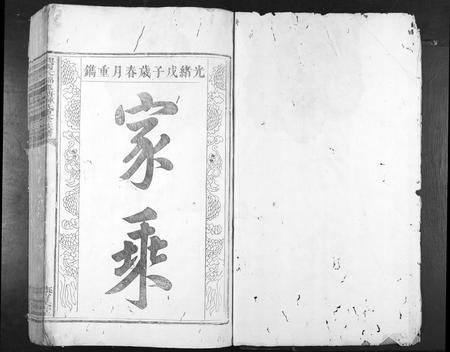 光緒戊子歲春月重鐫
家乘